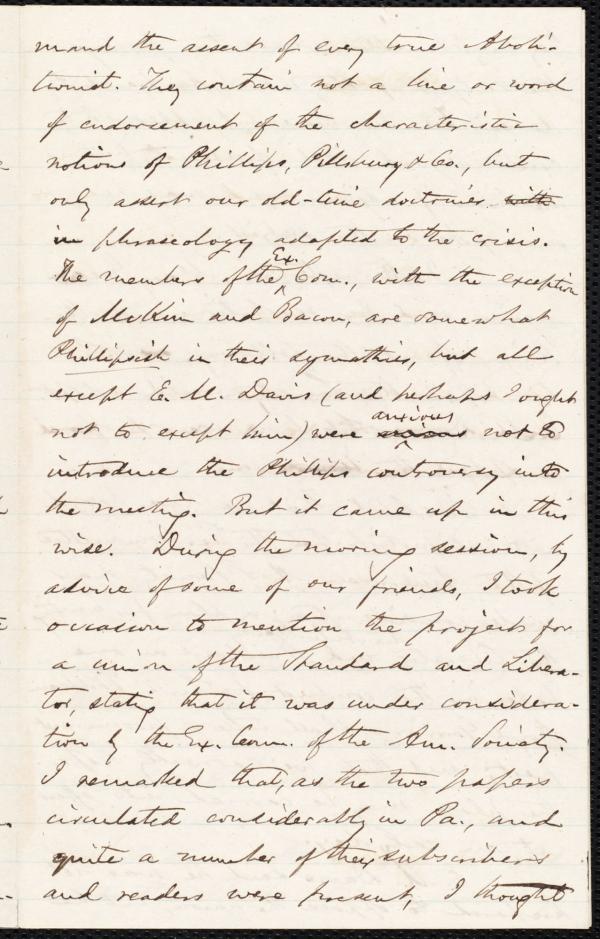 mand the assent of every true Aboli-
tionist. They contain not a line or word
of endorsement of the characteristic
notions of Phillips, Pillsbury & Co., but
only assert our old-time doctrines with
in phraseology adapted to the crisis.
The members of the Ex. Com., with the exception
of McKim and Bacon, are somewhat
Phillipsish in their sympathies, but all
except E. M. Davis (and perhaps I ought
not to except him) were anxious not to
introduce the Phillips controversy into
the meeting. But it came up in this
wise. During the morning session, by
advice of some of our friends, I took
occasion to mention the project for
a union of the Standard and Libera-
tor, stating that it was under considera-
tion by the Ex. Comm. of the Am. Society.
I remarked that, as the two papers
circulated considerably in Pa., and
quite a number of their subscribers
and readers were present, I thought